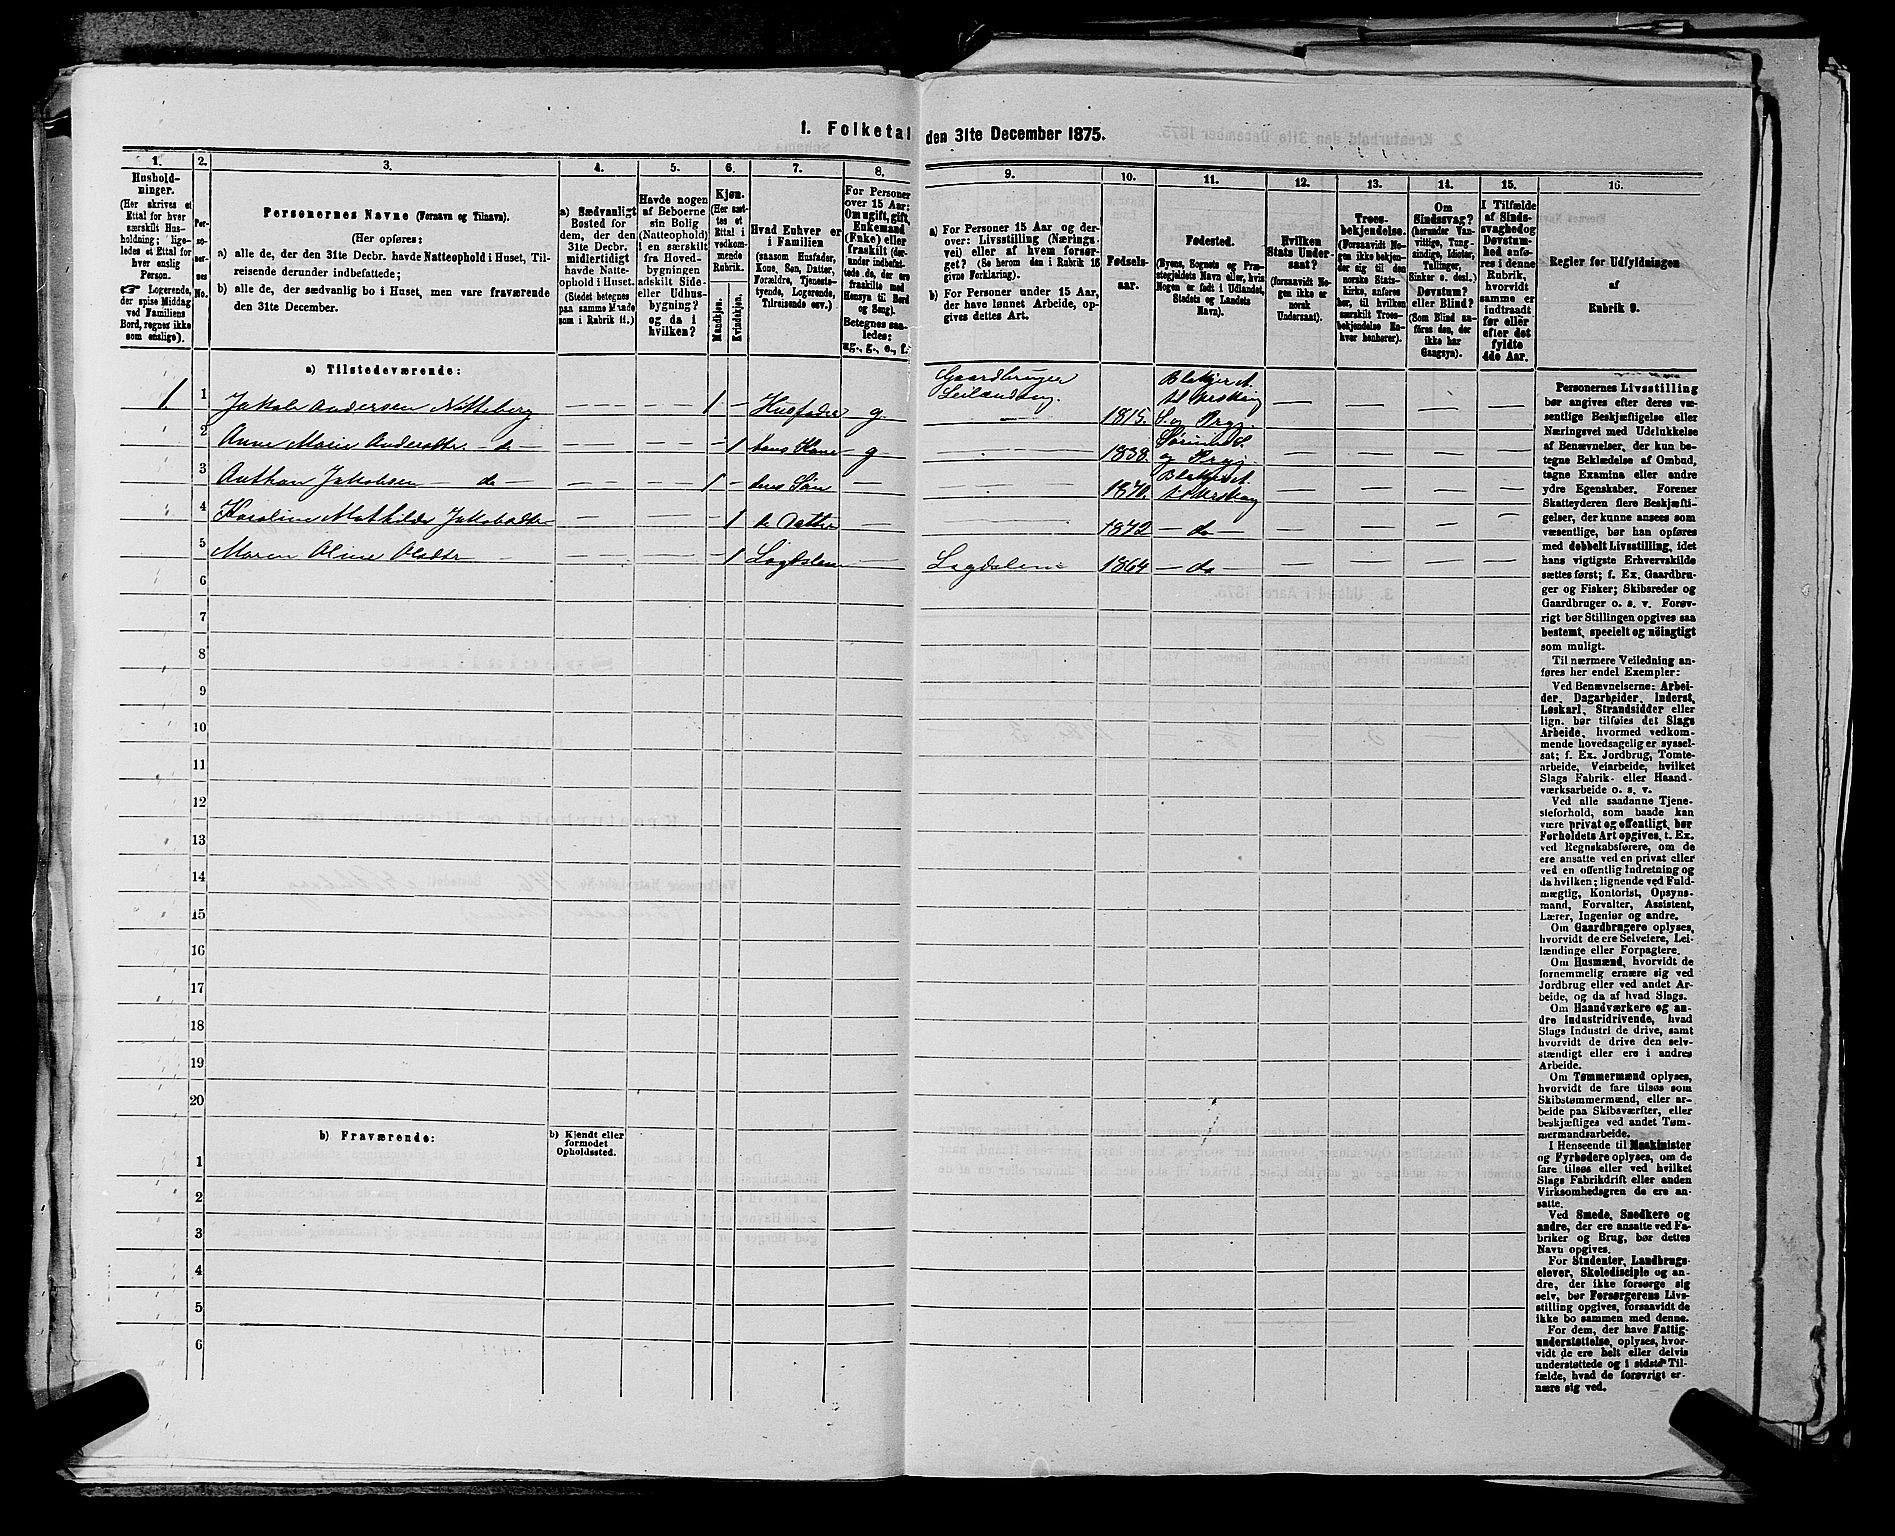 1. Folketal den 31te December 1875.
1.
2.
3.
4.
5.
6.
7.
8.
9.
10.
11.
12.
13.
14.
15.
16.
Hushold-
ninger.
(Her skrives et
Ettal for hver
særskilt Hus-
holdning; lige-
ledes et Ettal for
hver enslig
Person.
☛ Logerende,
der spise Middag
ved Familiens
Bord, regnes ikke
som enslige).
Per-
so-
ner-
nes
No.
Personernes Navne (Fornavn og Tilnavn).
(Her opføres:
a) alle de, der den 31te Decbr. havde Natteophold i Huset, Til-
reisende derunder indbefattede;
b) alle de, der sædvanlig bo i Huset, men vare fraværende
den 31te December.
a) Sædvanligt
Bosted for
dem, der den
31te Decbr.
midlertidigt
havde Natte-
ophold i Huset.
(Stedet betegnes
paa samme Maade
som i Rubrik 11.)
Havde nogen
af Beboerne
sin Bolig
(Natteophold)
i en særskilt
fra Hoved-
bygningen
adskilt Side-
eller Udhus-
bygning?
og da i
hvilken?
Kjøn.
(Her sæt-
tes et
Ettal i
vedkom-
mende
Rubrik.
Mandkjøn.
Kvindekjøn.
Hvad Enhver er
i Familien
(saasom Husfader,
Kone, Søn, Datter,
Forældre, Tjeneste-
tyende, Logerende,
Tilreisende osv.)
For Personer
over 15 Aar:
Om ugift, gift,
Enkemand
(Enke) eller
fraskilt (der-
under indbefat-
tede de, der ere
fraskilte med
Hensyn til Bord
og Seng).
Betegnes saa-
ledes:
ug., g., e., f.
a) For Personer 15 Aar og der-
over: Livsstilling (Nærings-
vei) eller af hvem forsør-
get? (Se herom den i Rubrik 16
givne Forklaring).
b) For Personer under 15 Aar,
der have lønnet Arbeide, op-
gives dettes Art.
Fødsels-
aar.
Fødested.
(Byens, Sognets og Præ-
stegjeldets Navn eller, hvis
Nogen er født i Udlandet,
Stedets og Landets
Navn).
Hvilken
Stats Under-
saat?
(forsaavidt No-
gen ikke er
norsk
Undersaat).
Troes-
bekjendelse.
(Forsaavidt No-
gen ikke bekjen-
der sig til den
norske Stats-
kirke, anføres
her, til hvilken
særskilt Troes-
bekjendelse En-
hver henhører).
Om
Sindssvag?
(herunder Van-
vittige, Tung-
sindige, Idioter,
Tullinger,
Sinker o. desl.)
Døvstum?
eller Blind?
(Som Blind an-
føres den, der
ikke har
Gangsyn).
I Tilfælde
af Sinds-
svaghed og
Døvstum-
hed anfø-
res i denne
Rubrik,
hvorvidt
samme er
indtraadt
før eller
efter det
fyldte
4de Aar.
Regler for Udfyldningen
af
Rubrik 9.
a) Tilstedeværende:
1. 1 Jakob Andersen Nitteberg — — 1 — Husfader g Gaardbruger Leilænding 1815
S. og Prgj.
2 Anne Marie Andersdtr. — do — — — — 1 hans Kone g 1838
og Prgj.
3 Anthon Jakobsen — do — — — 1 — deres Søn — 1870
4 Karoline Mathilde Jakobsdtr — — — 1 do Datter — 1872 — do —
5 Maren Oline Olsdtr — — — — 1 Lægdslem — Lægdslem 1864 — do —
6
7
8
9
10
11
12
13
14
15
16
17
18
19
20
b) Fraværende:
b) Kjendt eller
formodet
Opholdssted.
1
2
3
4
5
6
Personernes Livsstilling
bør angives efter deres væ-
sentlige Beskjæftigelse eller
Næringsvei med Udelukkelse
af Benævnelser, der kun be-
tegne Beklædelse af Ombud,
tagne Examina eller andre
ydre Egenskaber. Forener
Skatteyderen flere Beskjæfti-
gelser, der kunne ansees som
væsentlige, bør han opføres
med dobbelt Livsstilling, idet
hans vigtigste Erhvervskilde
sættes først; f. Ex. Gaardbru-
ger og Fisker; Skibsreder og
Gaardbruger o. s. v. Forøv-
rigt bør Stillingen opgives saa
bestemt, specielt og nöiagtigt
som muligt.
Til nærmere Veiledning an-
føres her endel Exempler:
Ved Benævnelserne: Arbei-
der, Dagarbeider, Inderst,
Løskarl, Strandsidder eller
lign. bør tilføies det Slags
Arbeide, hvormed vedkom-
mende hovedsagelig er syssel-
sat; f. Ex. Jordbrug, Tomte-
arbeide, Veiarbeide, hvilket
Slags Fabrik- eller Haand-
værksarbeide o. s. v.
Ved alle saadanne Tjene-
steforhold, som baade kan
være privat og offentligt, bør
Forholdets Art opgives, t. Ex.
ved Regnskabsførere, om de
ere ansatte ved en privat eller
ved en offentlig Indretning og
da hvilken; lignende ved Fuld-
mægtig, Kontorist, Opsyns-
mand, Forvalter, Assistent,
Lærer, Ingeniør og andre.
Om Gaardbrugere oplyses,
hvorvidt de ere Selveiere, Lei-
lændinge eller Forpagtere.
Om Husmænd, hvorvidt de
fornemmelig ernære sig ved
Jordbrug eller ved andet Ar-
beide, og da af hvad Slags.
Om Haandværkere og an-
dre Industridrivende, hvad
Slags Industri de drive, samt
hvorvidt de drive den selv-
stændigt eller ere i andres
Arbeide.
Om Tømmermænd oplyses,
hvorvidt de fare tilsøs som
Skibstømmermænd, eller ar-
beide paa Skibsværfter, eller
beskjæftiges ved andet Tøm-
mermandsarbeide.
I Henseende til Maskinister
og Fyrbødere oplyses, om de
fare tilsøs eller ved hvilket
Slags Fabrikdrift eller anden
Virksomhedsgren de ere an-
satte.
Ved Smede, Snedkere og
andre, der ere ansatte ved Fa-
briker og Brug, bør dettes
Navn opgives.
For Studenter, Landbrugs-
elever, Skoledisciple og an-
dre, der ikke forsørge sig
selv, bør Forsørgerens Livs-
stilling opgives, forsaavidt de
ikke bo sammen med denne.
For dem, der have Fattig-
understøttelse, oplyses, hvor-
vidt de ere helt eller delvis
understøttede og i sidste Til-
fælde, hvad de forøvrigt er-
nære sig ved.